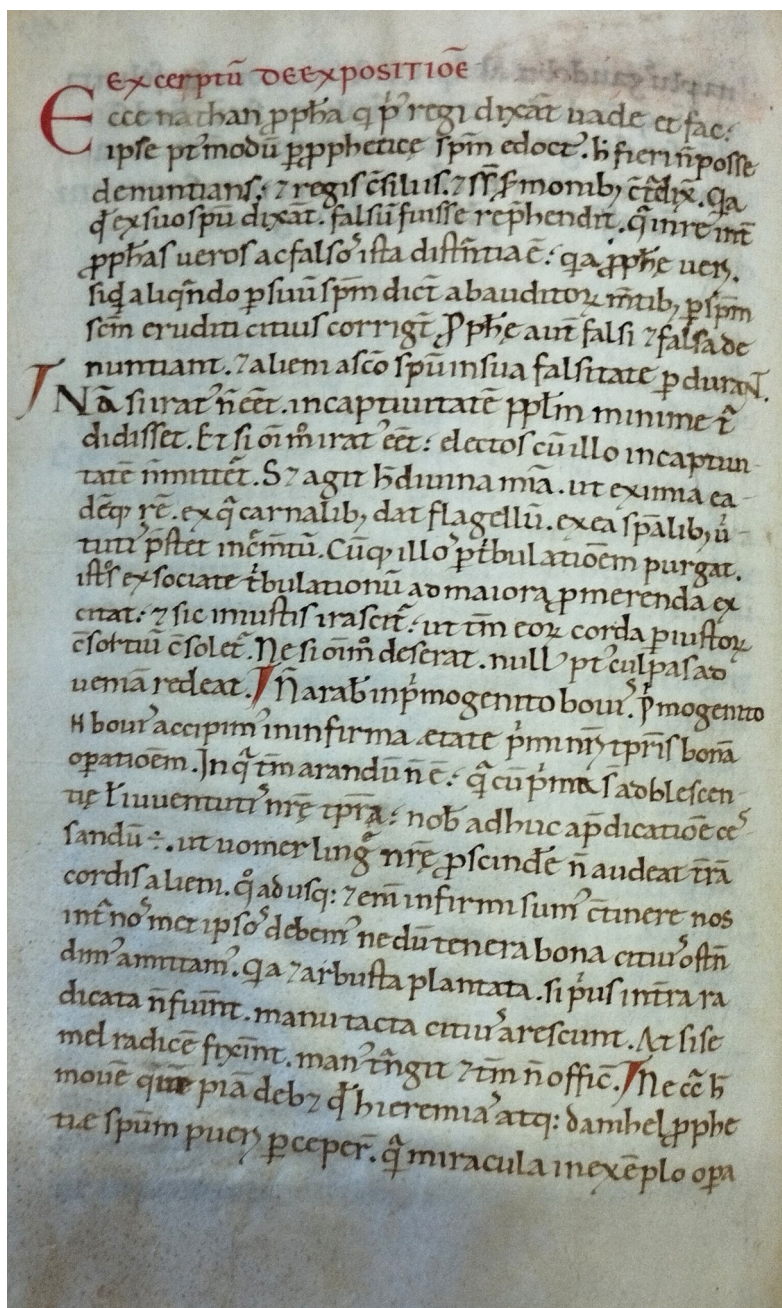 Excerptū DE EXPOSITIOē
Ecce nathan ꝓph̄a q̇ p̓ regi dixat̄ uade et fac:
ipse pt᷒ modū ꝑ ꝓphetice sp̄m edoct᷒. h̄ fieri n̄ posse
denuntians. ⁊ regis c̄siliis. ⁊ monib; dix̄. Qa
qđ ex suo sp̄u dixat̄. falsū fuisse rep̄hendit. inre int̄
ꝓph̄as ueros ac falso᷒ ista dist̄ntia ē: qa ꝓph̄e ueri.
siqđ aliqn̄do ꝑ suū sp̄m dict̄ ab auditoꝝ m̄tib; ꝑ sp̄m
sc̄m eruditi citius corrigt̄. Ꝓph̄e aut̄ falsi ⁊ falsa de
nuntiant. ⁊ alieni a sc̄o sp̄u in sua falsitate ꝑdurant.
Nā si irat᷒ n̄ eēt. in captiuitatē ppl̄m minime t̄
didisset. Et si oī m̊ irat᷒ eēt: electos cū illo in captiui
tatē n̄ mittet̄. S⁊ agit h̄ diuina mīa. ut eximia ea
dēq; rē. ex q̄ carnalib; dat flagellū. ex ea sp̄alib; u̓
tuti᷒ p̄stet incm̄tū. Cūq; illo᷒ ꝑ t̓bulatioēm purgat.
isto᷒ ex sociate t̓bulationū ad maiora ꝓmerenda ex
citat: ⁊ sic iniustis irascit̄: ut tm̄ eoꝝ corda ꝑ iustoꝝ
c̄sortiū c̄solet̄. Ne si oīm̊ deserat. null᷒ pt᷒ culpas ad
ueniā redeat. N̄ arab᷒ in p̓mogenito bouis. p̓mogenito
N boui᷒ accipim᷒ in infirma ętate p̓mi nr̄i tp̄ris bonā
oꝑatioēm. In q̄ tm̄ arandū n̄ ē: q̄ cū p̓ma s̄ adolescen
tię ł iuuentuti᷒ nr̄ę tp̄ra: nob̄ adhuc a p̄dicatioē ce
sandū ÷. ut uomer lingę nr̄ę ꝓscindē n̄ audeat tr̄rā
cordis alieni. q̊ad usq: ⁊em̄ infirmi sum᷒ c̄tinere nos
int̄ no᷒ met ipso᷒ debem᷒ ne dū tenera bona citiu᷒ ostn̄
dim᷒ amittam᷒. Qa ⁊ arbusta plantata. si p̓us int̄ra ra
dicata n̄ fuint̄. manu tacta citiu᷒ arescunt. At si se
mel radicē fixint̄. man᷒ tn̄git ⁊ tm̄ n̄ offic̄. Nec eē h̄
mouē quē piā deb⁊ qđ hieremia᷒ atq: danihel ꝓphe
tiæ spūm pueri ꝑceper̄. q̄ miracula in exēplo oꝑa